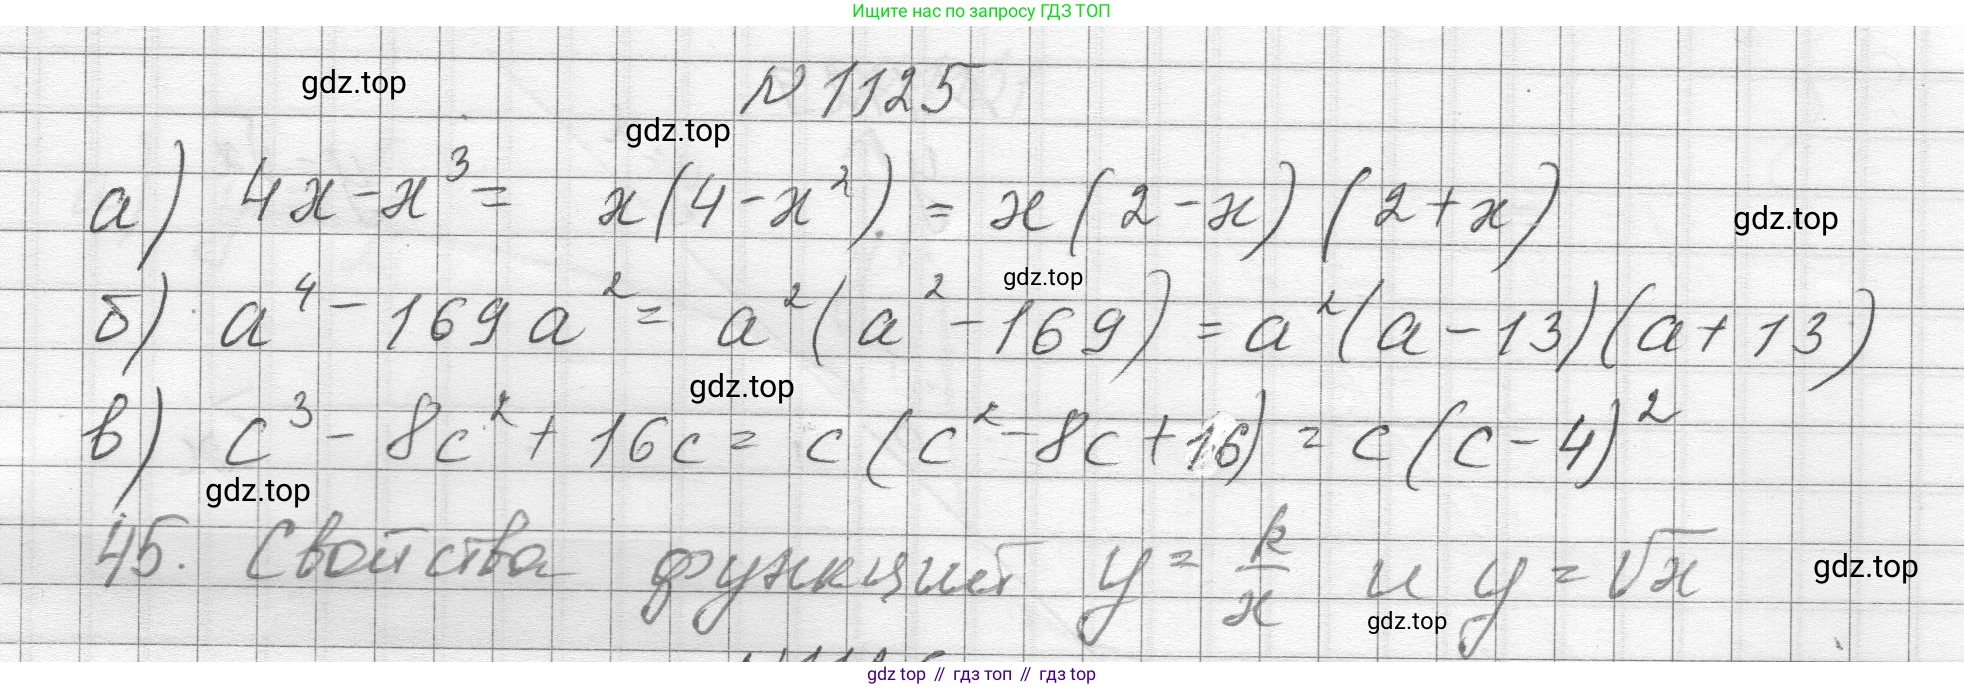 Ищите нас по запросу ГДЗ ТОП
gdz.top
№ 1125
gdz.top
а) 4x - x³ = x(4 - x²) = x(2 - x)(2 + x)
gdz.top
gdz.top
б) a⁴ - 169a² = a²(a² - 169) = a²(a - 13)(a + 13)
gdz.top
в) c³ - 8c² + 16c = c(c² - 8c + 16) = c(c - 4)²
gdz.top
45. Свойства функций y = k/x и y = √x
gdz.top
gdz.top
gdz top // гдз топ // гдз top